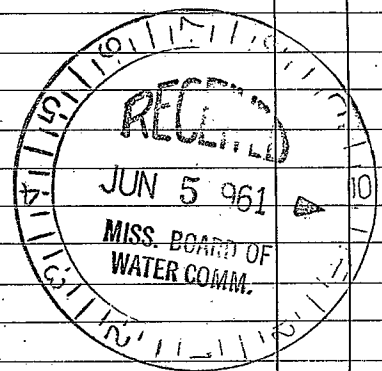 RECEIVED
JUN 5 961
MISS. BOARD OF
WATER COMM.
7
6
5
4
3
2
10